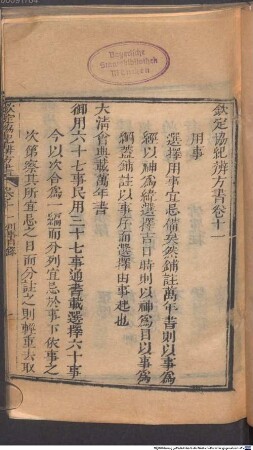 欽定協紀辨方書卷十一
用事
選擇用事宜忌備矣然鋪註萬年書則以事為
經以神為緯選擇吉日時則以神為目以事為
綱蓋鋪註以事序而選擇由事起也
大清會典載萬年書
御用六十七事民用三十七事通書載選擇六十事
今以次合為一篇而分列宜忌於事下依事之
次第察其所宜忌之日而分註之則輕重去取
欽定協紀辨方書
卷十一目錄
Bayerische
Staatsbibliothek
München